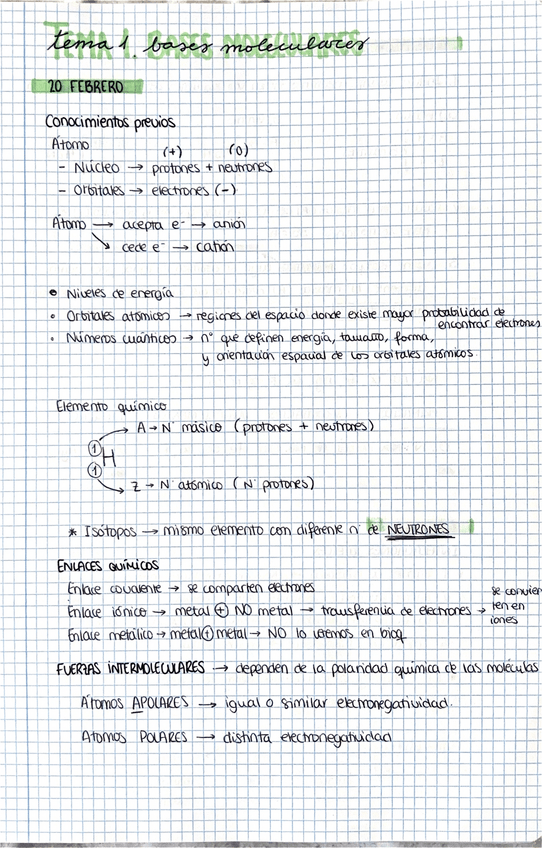 tema 1. bases moleculares
20 FEBRERO
Conocimientos previos
Átomo
(+) (0)
- Núcleo → protones + neutrones
- Orbitales → electrones (-)
Átomo → acepta e⁻ → anión
↘ cede e⁻ → catión
• Niveles de energía
• Orbitales atómicos → regiones del espacio donde existe mayor probabilidad de
encontrar electrones
• Números cuánticos → nº que definen energía, tamaño, forma,
y orientación espacial de los orbitales atómicos
Elemento químico
A → Nº másico (protones + neutrones)
1
H
1
Z → Nº atómico (Nº protones)
* Isótopos → mismo elemento con diferente nº de NEUTRONES
ENLACES QUÍMICOS
Enlace covalente → se comparten electrones
Enlace iónico → metal ⊕ NO metal → transferencia de electrones → se convier
ten en
iones
Enlace metálico → metal ⊕ metal → NO lo veremos en bioq
FUERZAS INTERMOLECULARES → dependen de la polaridad química de las moléculas
Átomos APOLARES → igual o similar electronegatividad.
Atomos POLARES → distinta electronegatividad